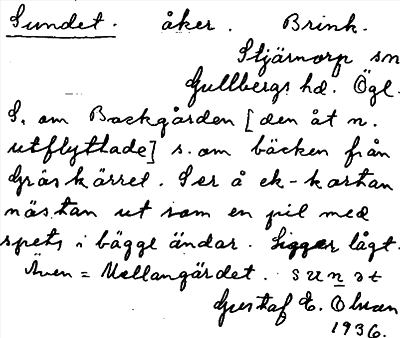 Sundet. åker. Brink.
Stjärnorp sn
Gullbergs hd. Ögl.
S. om Backgården [den åt n.
utflyttade] s. om bäcken från
Gräskärret. Ser å ek-kartan
nästan ut som en pil med
spets i bägge ändar. Ligger lågt.
Även = Mellangärdet.
Gustaf E. Olsson
1936.